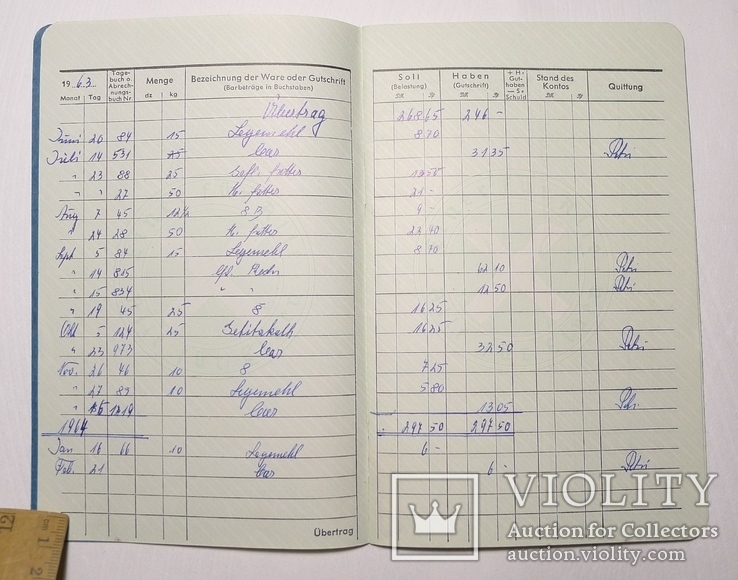 19 63
Monat Tag Tage- buch o. Abrech- nungs- buch Nr Menge dz kg Bezeichnung der Ware oder Gutschrift (Barbeträge in Buchstaben)
Soll (Belastung) Haben (Gutschrift) + H= Gut- haben — S= Schuld Stand des Kontos Quittung
Übertrag 268 65 246 -
Juni 20 84 15 Legemehl 8 70
Juli 14 531 bar 31 35 Petri
" 23 88 25
" " 27 50 21 -
Aug 7 45 12½ 9 -
" 24 28 50 22 40
Sept 5 84 15 Legemehl 8 70
" 14 815 62 10 Petri
" 15 834 " " 12 50 Petri
" 19 45 25 8 16 25
Okt 5 124 25 16 25
" 23 973 bar 32 50 Petri
Nov. 26 46 10 8 7 25
" 27 89 10 Legemehl 5 80
" bar 13 05
1964 297 50 297 50
Jan 16 66 10 Legemehl 6 -
Feb. 21 bar 6 - Petri
Übertrag
VIOLITY
Auction for Collectors
auction.violity.com
cm 1 2